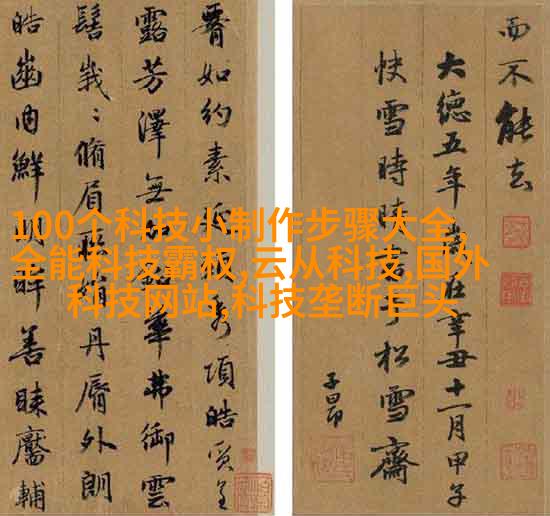 100个科技小制作步骤大全,
全能科技霸权,云从科技,国外
科技网站,科技垄断巨头
如約素項皓質呈
露芳澤無華弗御雲
髻峩〻脩眉丹脣外朗
皓齒內鮮眸善睞靨輔
而不能去
大德五年歲在辛丑十一月甲子
快雪時晴書于松雪齋
子昂